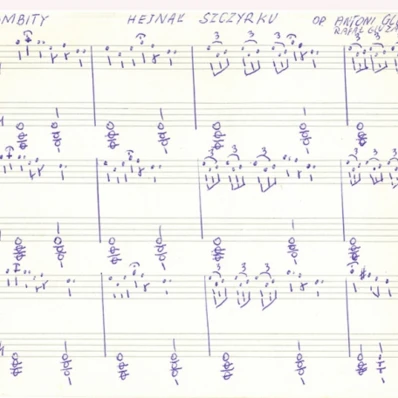 OMBITY HEJNAŁ SZCZYRKU OP ANTONI
RAFAŁ
3 3 3 3 3
3 3 3 3 3
3 3 3